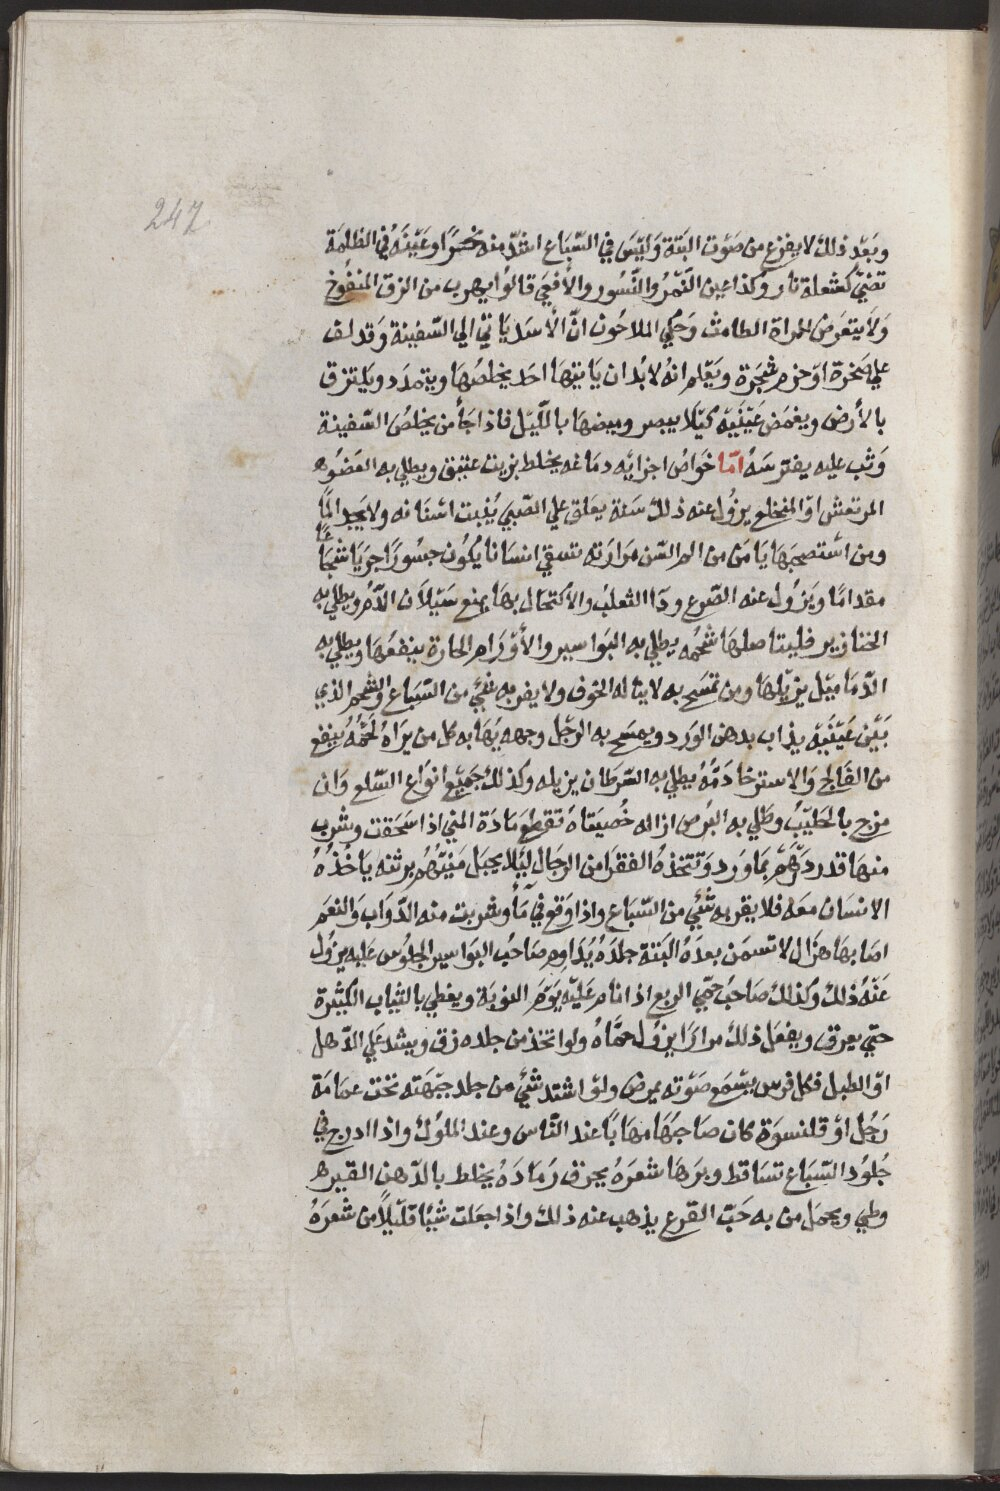 247
وبَعْد ذلك لا يفزع من صَوْت البَتّة وَلَيْسَ في السّبَاع اشَدّ منه وعَيْنَهُ في الظلمَة
تضئ كشعلة نار وكذا عين النّمْرُ والنّسُور والأفعَي قالوُا يهرب من الزق المنفُوخ
وَلاَ يتعَرضُ المراة الطامث وَحُكي الملاحُون انّ الأسَد يَاتي الي السّفينة وَقد لف
علي صَخرة اوْ حزم شجَرة ويَعْلم انهُ لا بُد ان يَاتيهَا احَد يخلصُهَا ويتمدَد ويَلتزق
بالأرض ويغمض عَيْنَيْه كَيْلا يبصر وبيضهَا بالّليْل فاذا جَأ من يخلصُ السّفينة
وَثب عليه يفترسَهُ امّا خَوَاصُ اجزايُه دمَاغه يخلط بزيت عتيق ويطلي به العَضُو
المرتعش اوْ المنخلع يزوُل عنه ذلك سَنة يعَلق علي الصّبيّ يُنبت اسْنَانه ولا يَجد المًا
ومن اسْتصحبَهَا يَامَن من الم السّن مَرَارته تسقي انسَانا يكوُن جسُورًا جريَا شجَاعًا
مقدامًا ويَزُول عنه الصّرع ودَا الثعلبُ والأكتحال بهَا يمنع سَيْلاَن الدّمُ ويطلي به
الخنازير فليتاصلهَا شحمُه يطلي به البَوَاسير والأوْرَام الحارة ينفعُهَا ويطلي به
الدّمَاميْل يزيْلهَا ومن تمسَح به لا يناله الخوف ولا يقربه شئ من السّبَاع والشحم الذي
بَيْن عَيْنَيْه يذاب بدهن الوَرد ويمسَح به الرجْل وجهه يَهَابه كل من يرَاهُ لحْمُهُ ينفع
من الفَالج وَالاسترخا دَمُهُ يطلي به السّرطان يزيله وكذلك جَميْع انوَاع السّلع وَان
مزج بالحَليْبُ وطْلي به البرص ازاله خُصيَتَاه تقطع مَادَة المني اذا سَحَقت وشرب
منهَا قدر درْهَم بمَاورد وَتتخذهُ الفقرَا من الرجَال ليْلا يحبل مَنيّهُمْ برثنه يَاخُذهُ
الانسَان معَه فلا يقربه شئ من السّبَاع واذا وَقع في مَأ وشربت منه الدّوَاب وَالنعم
اصَابهَا هزَال لا تسمَن بعدَهُ البَتة جلدَهُ يُدَاوم صَاحبُ البوَاسير الجلوُس عَليه يزوُل
عَنْهُ ذلك وكذلك صَاحبُ حمّي الربع اذا نام عَليْه يَوْم النوبَة ويغطي بالثياب الكثيرة
حتّي يعرق ويفعَل ذلك مرارًا يزوُل حُمّاهُ ولوا تخذ من جلده زق ويشد علَي الدّهل
اوْ الطبل فكل فرس يسْمَع صَوْته يمرض ولوا شتد شئ من جلد جبْهَته تحت عمَامَة
رَجُل اوْ قلنسوَة كان صَاحبُهَا مهَابًا عند النّاس وعند الملوُك واذا ادرج في
جُلوُد السّبَاع تسَاقط وبرَهَا شعرَهُ يحرق رَمَادَهُ يخلط بالدّهن
وطي ويحمَل من به حَبّ القرع يذهب عنه ذلك واذا جعَلت شيْأ قليْلاً من شعرَهُ